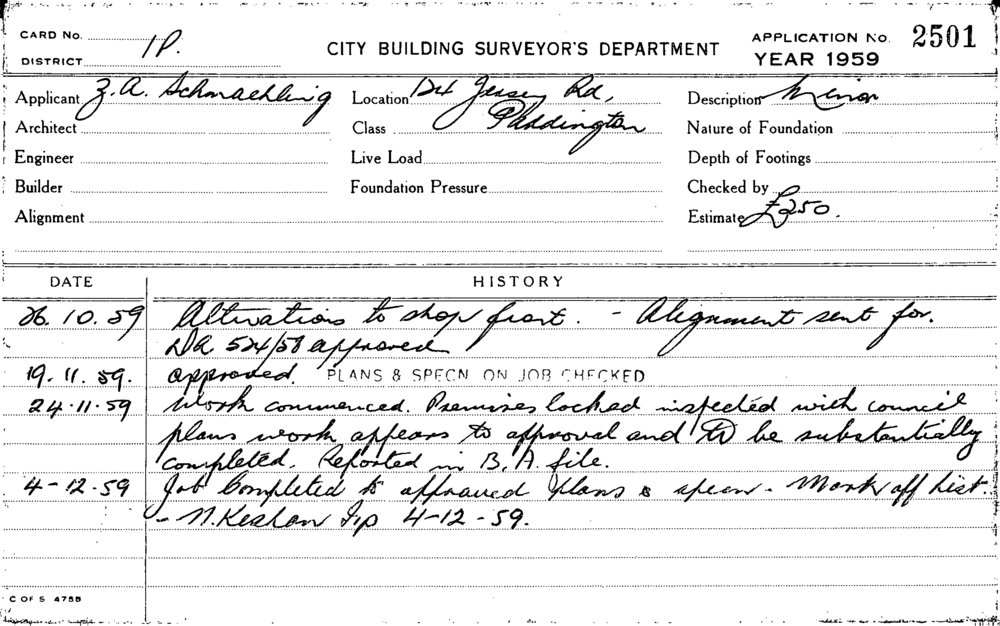 CARD NO.
DISTRICT 1P.
CITY BUILDING SURVEYOR'S DEPARTMENT
APPLICATION NO. 2501
YEAR 1959
Applicant Z. A. Schmaehling
Location 124 Jersey Rd,
Description Minor
Architect
Class Paddington
Nature of Foundation
Engineer
Live Load
Depth of Footings
Builder
Foundation Pressure
Checked by
Alignment
Estimate £250.
DATE HISTORY
26.10.59 Alterations to shop front. - Alignment sent for.
DA 524/58 approved
19.11.59. approved. PLANS & SPECN ON JOB CHECKED
24.11.59 Work commenced. Premises locked inspected with council
plans work appears to approval and to be substantially
completed. Reported in B.A. file.
4-12.59 Job Completed to approved plans & specn - Mark off List.
- N. 4-12-59.
C OF S 475B